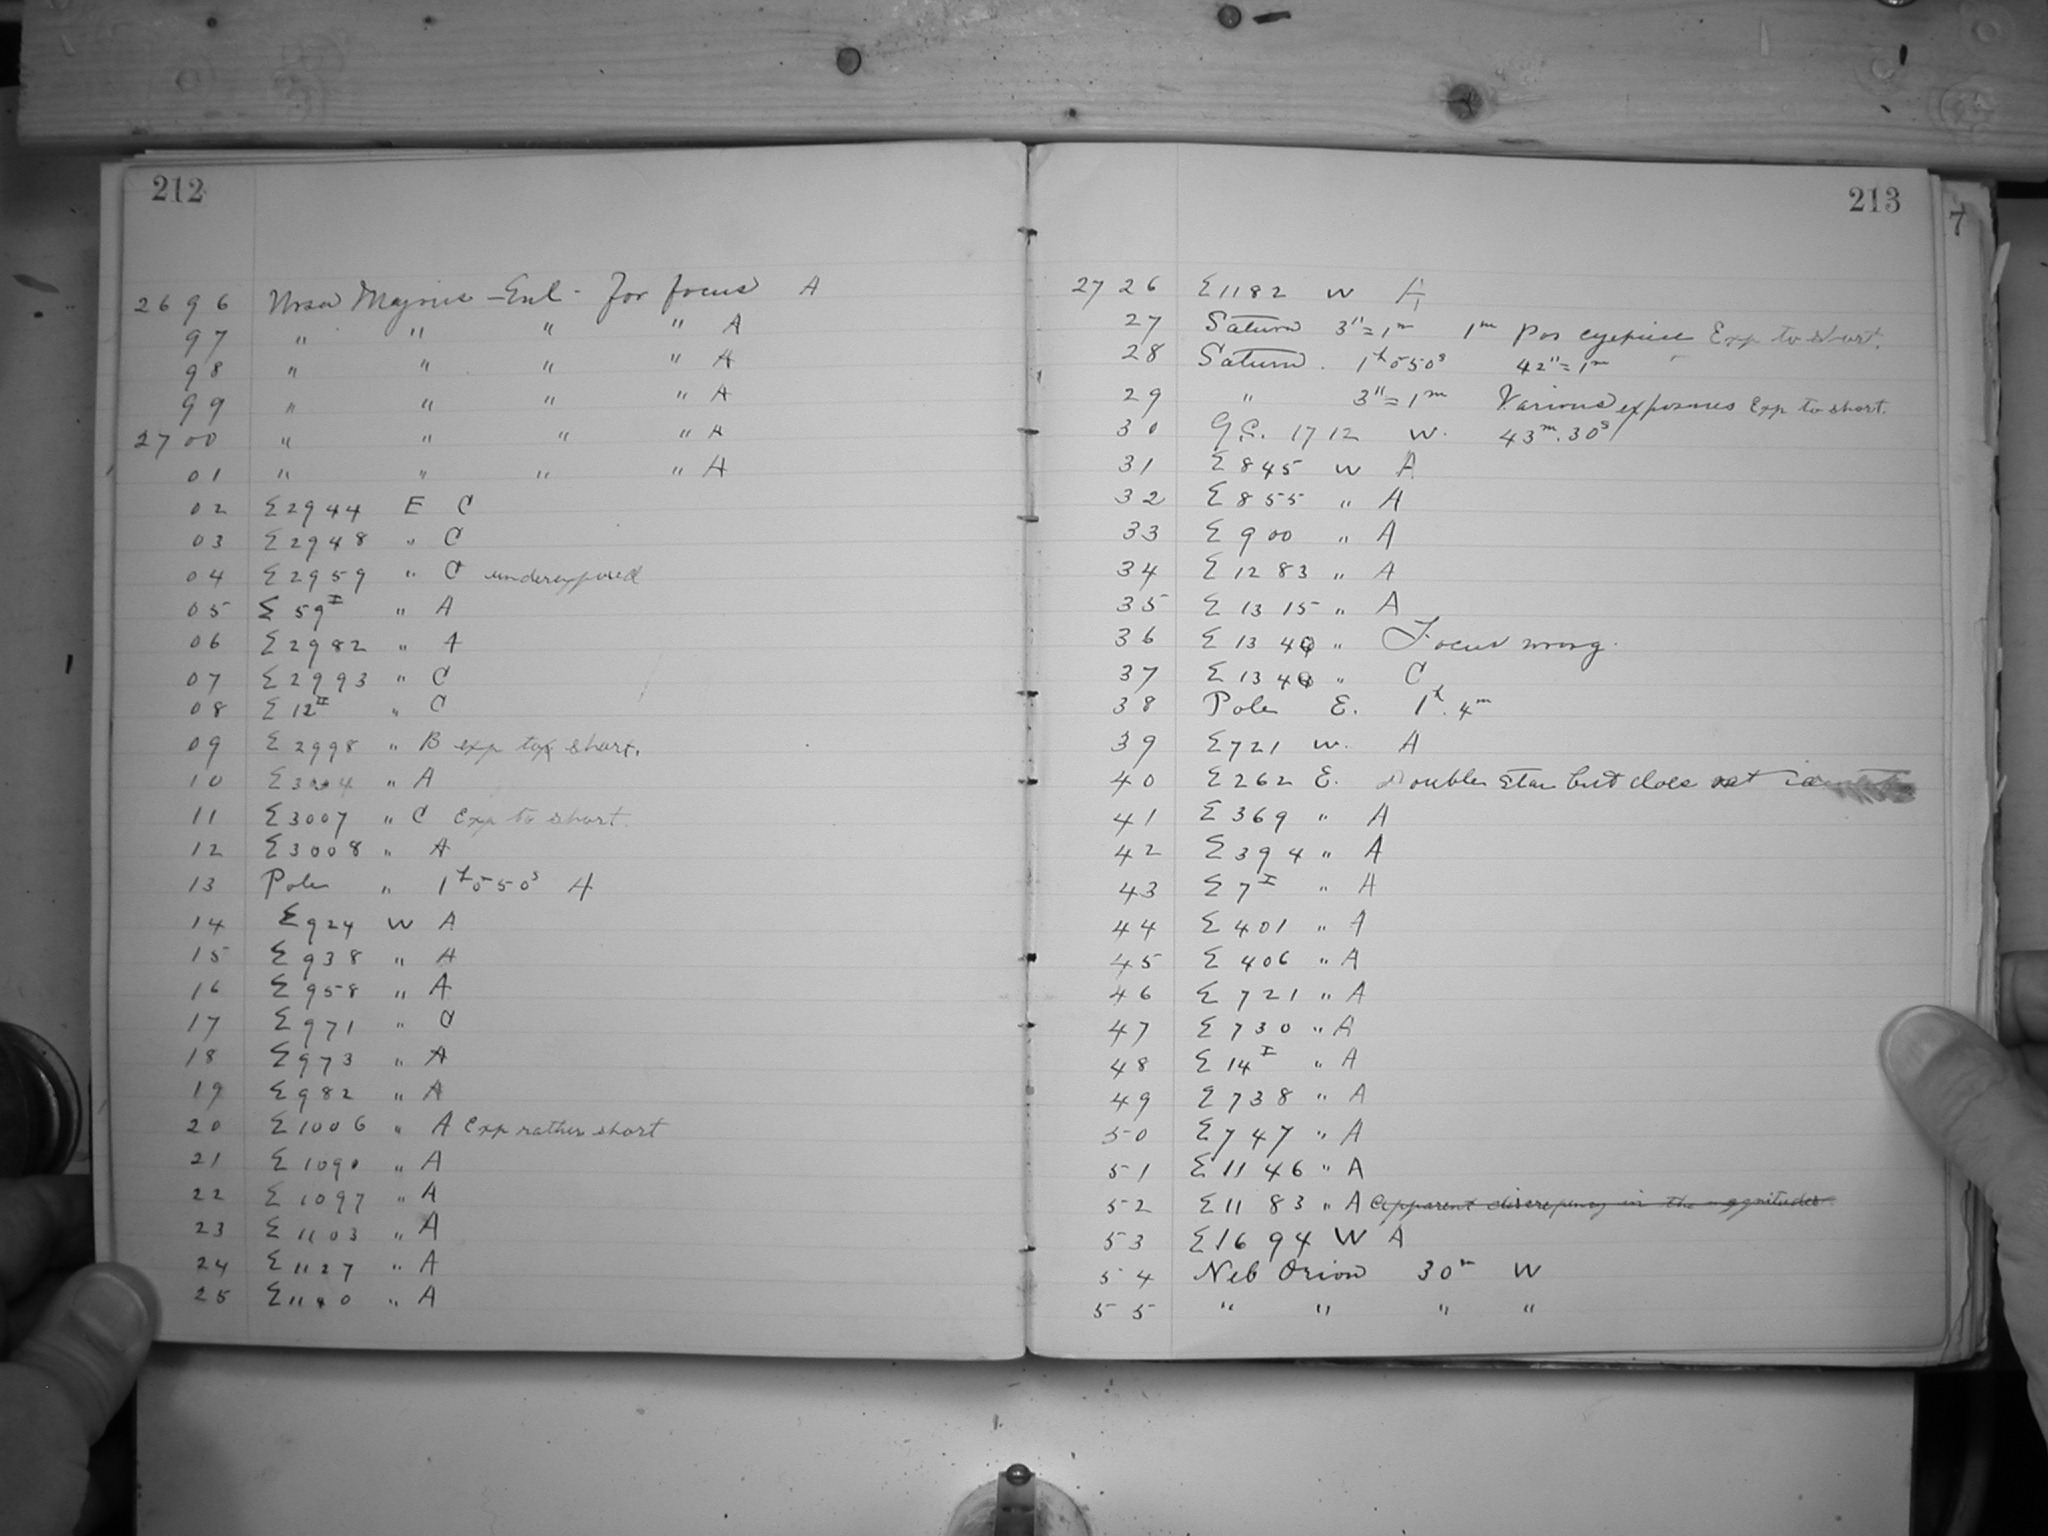 212
2696 Ursa Majoris - Enl - For focus A
97 " " " " A
98 " " " " A
99 " " " " A
2700 " " " " A
01 " " " " A
02 Σ2944 E C
03 Σ2948 " C
04 Σ2959 " C underexposed
05 Σ59ᴵ " A
06 Σ2982 " A
07 Σ2993 " C
08 Σ12ᴵᴵ " C
09 Σ2998 " B exp to short.
10 Σ3004 " A
11 Σ3007 " C Exp to short.
12 Σ3008 " A
13 Pole " 1ʰ 5 50ˢ A
14 Σ924 W A
15 Σ938 " A
16 Σ958 " A
17 Σ971 " C
18 Σ973 " A
19 Σ982 " A
20 Σ1006 " A Exp rather short
21 Σ1090 " A
22 Σ1097 " A
23 Σ1103 " A
24 Σ1127 " A
25 Σ1180 " A
213
7
2726 Σ1182 W A
27 Saturn 3"=1ᵐ 1ᵐ Pos eyepiece Exp to short.
28 Saturn. 1ʰ 5 50ˢ 42"=1ᵐ
29 " 3"=1ᵐ Various exposures Exp to short.
30 G.C. 1712 W. 43ᵐ.30ˢ
31 Σ845 W A
32 Σ855 " A
33 Σ900 " A
34 Σ1283 " A
35 Σ1315 " A
36 Σ1340 " Focus wrong.
37 Σ1340 " C
38 Pole E. 1ʰ. 4ᵐ
39 Σ721 W. A
40 Σ262 E. Double star but does not
41 Σ369 " A
42 Σ394 " A
43 Σ7ᴵ " A
44 Σ401 " A
45 Σ406 " A
46 Σ721 " A
47 Σ730 " A
48 Σ14ᴵ " A
49 Σ738 " A
50 Σ747 " A
51 Σ1146 " A
52 Σ1183 " A Apparent discrepancy in the magnitudes
53 Σ1694 W A
54 Neb Orion 30ᵐ W
55 " " " "